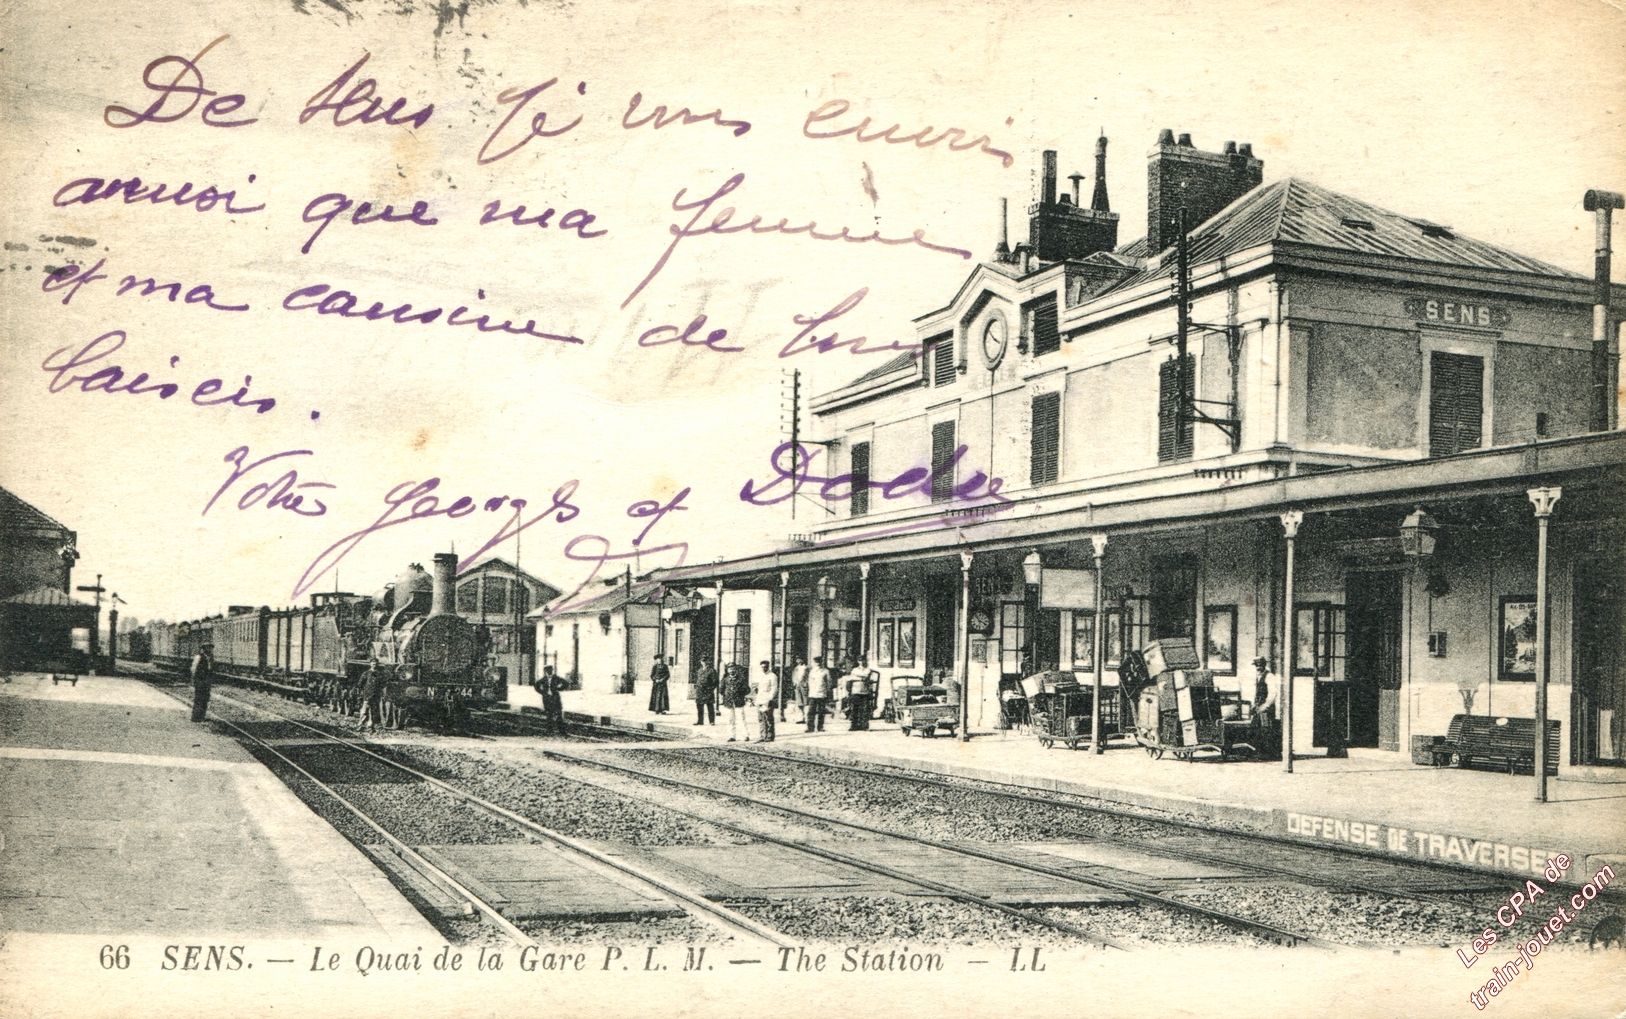 De Sens je vous envoi
ainsi que ma femme
et ma cousine de bons
baisers.
Votre Georges et Dodu
SENS
SENS
N 2.744
DEFENSE DE TRAVERSER
66 SENS. — Le Quai de la Gare P. L. M. — The Station — LL
Les CPA de
train-jouet.com